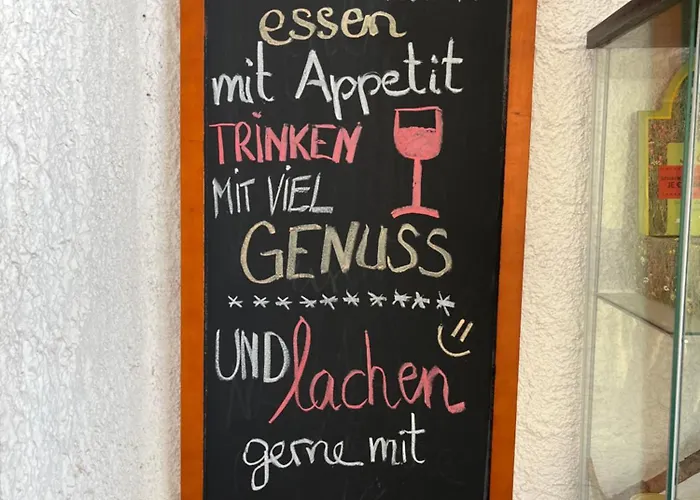 essen
mit Appetit
TRINKEN
MIT VIEL
GENUSS
UND lachen
gerne mit